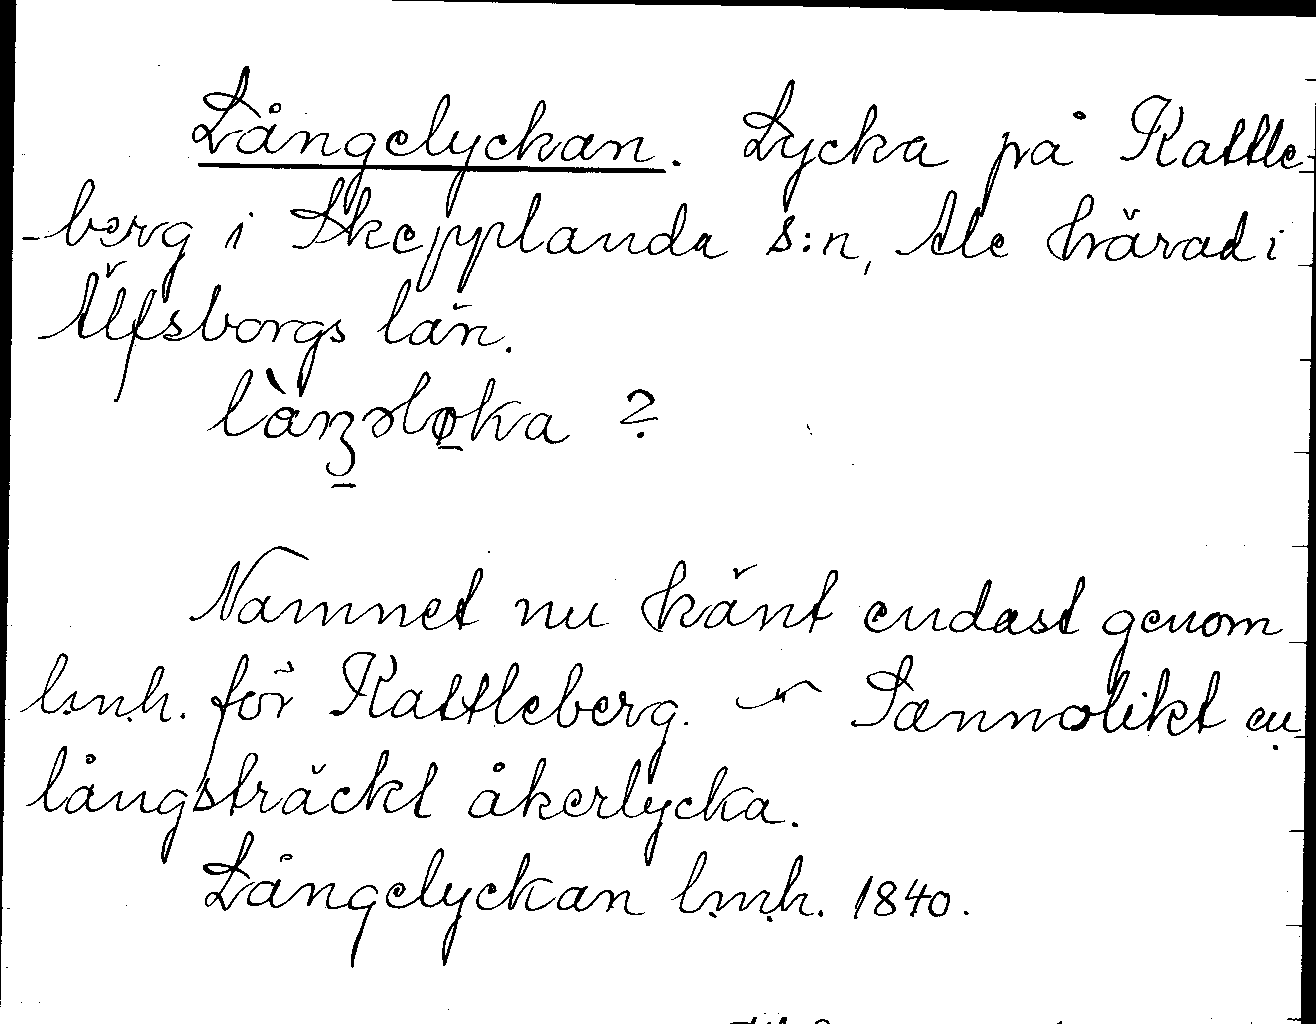 Långelyckan. Lycka på Kattle-
berg i Skepplanda s:n, Ale härad i
Älfsborgs län.
Namnet nu känt endast genom
l.m.h. för Kattleberg. – Sannolikt en
långsträckt åkerlycka.
Långelyckan l.m.h. 1840.